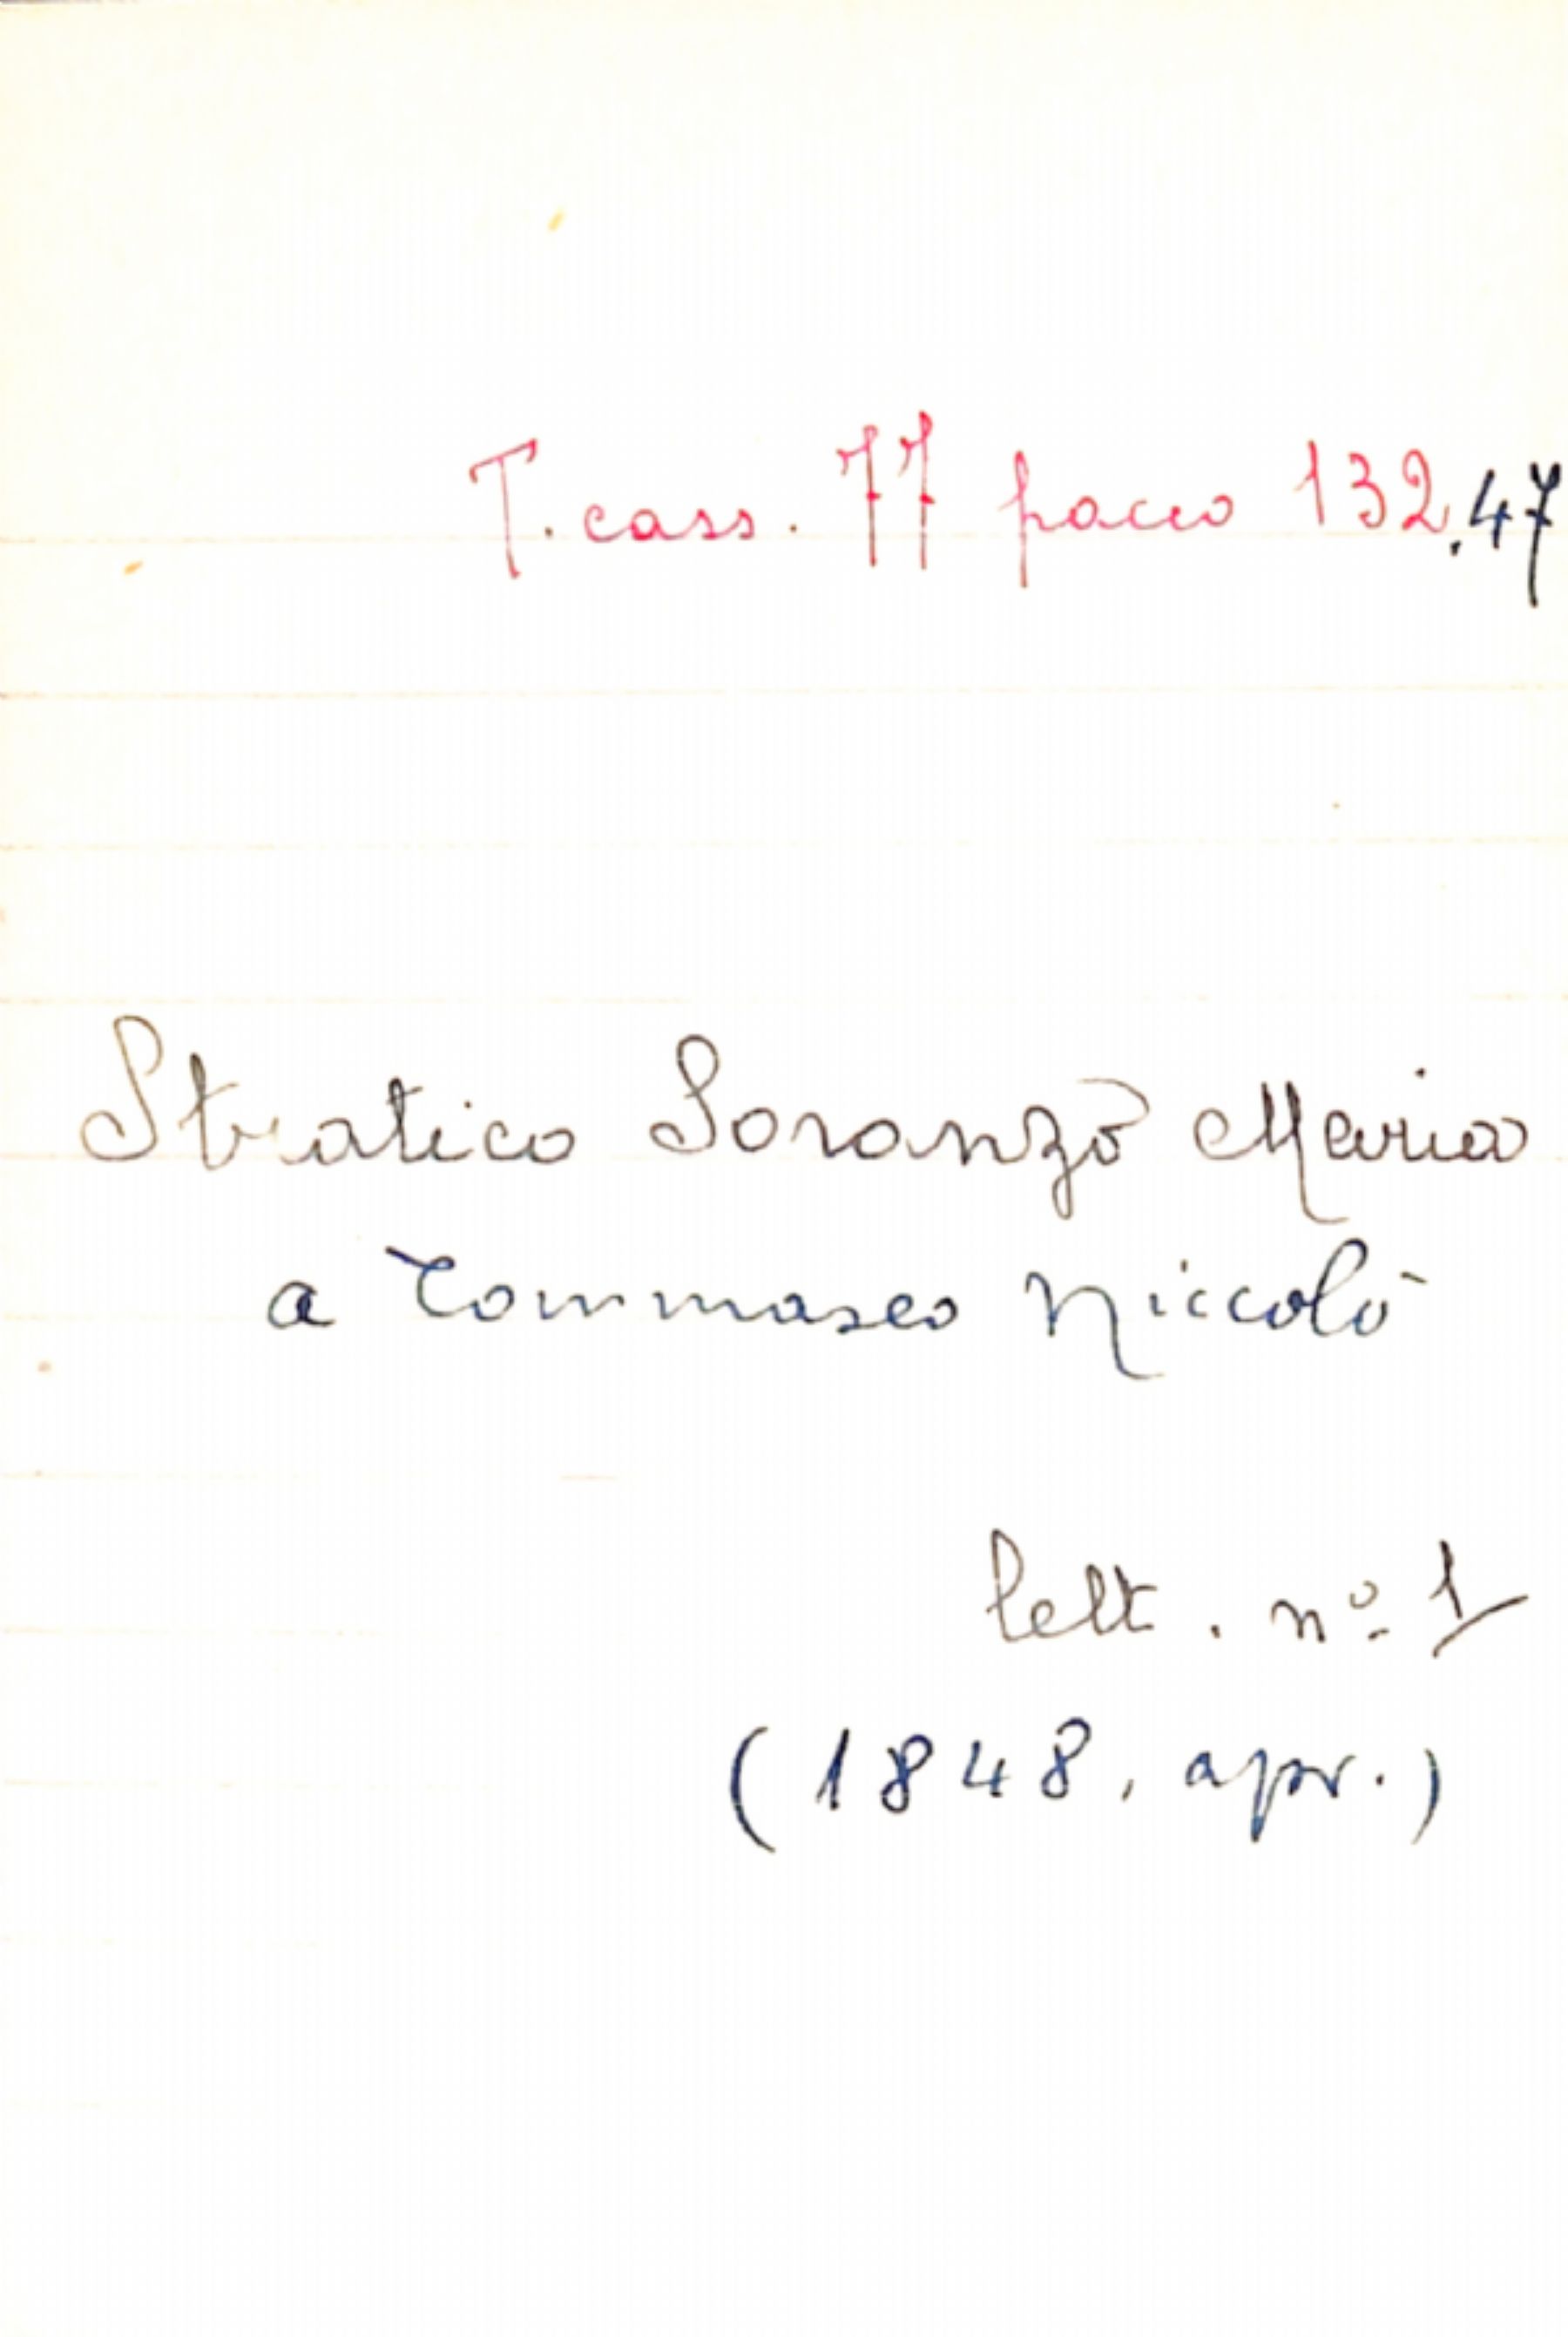 T. cass. 77 pacco 132.47
Stratico Soranzo Maria
a Tommaseo Niccolò
lett. nº 1
(1848, apr.)